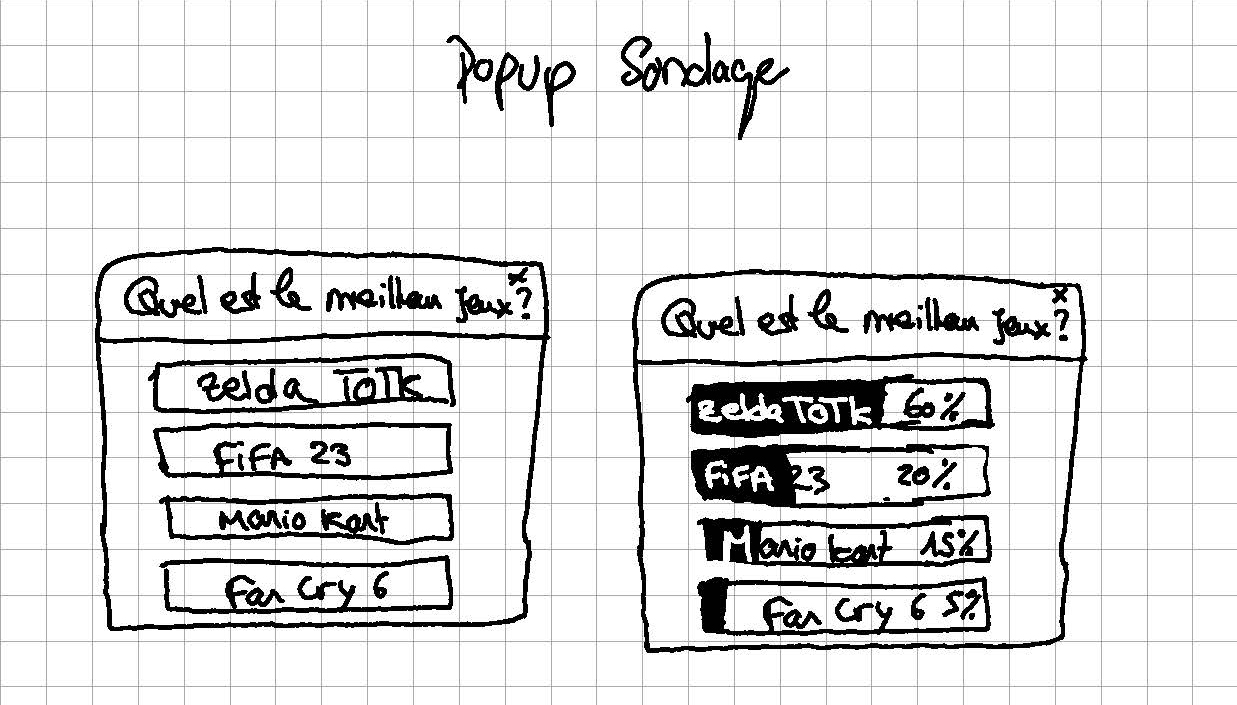 Popup Sondage
x
Quel est le meilleur jeux?
Zelda TOTK
FiFA 23
Mario Kart
Far Cry 6
x
Quel est le meilleur jeux?
Zelda TOTK 60%
FiFA 23 20%
Mario kart 15%
Far Cry 6 5%